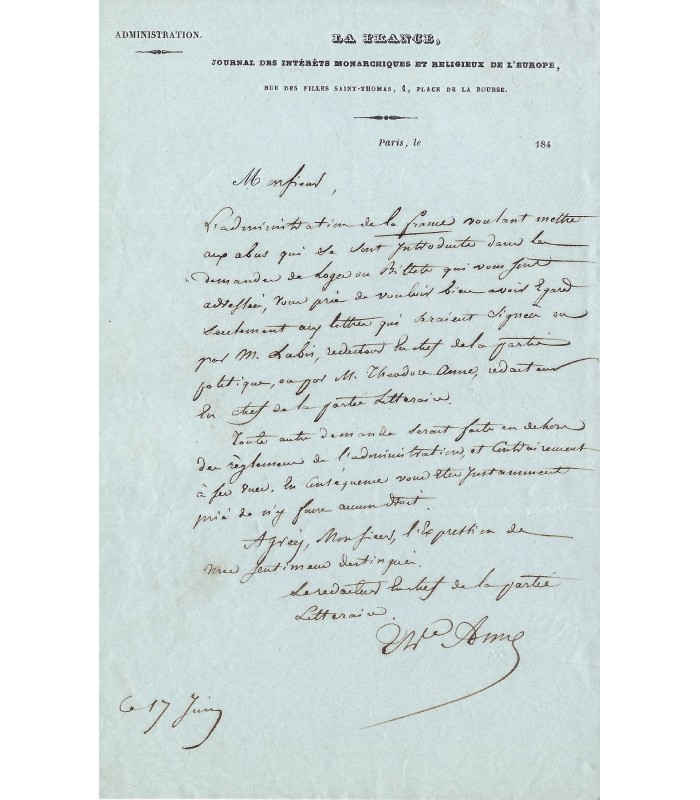 ADMINISTRATION.
LA FRANCE,
JOURNAL DES INTÉRÊTS MONARCHIQUES ET RELIGIEUX DE L'EUROPE,
RUE DES FILLES SAINT-THOMAS, 1, PLACE DE LA BOURSE.
Paris, le 184
Monsieur,
L'administration de la france voulant mettre
aux abus qui se sont Introduits dans les
demandes de loges ou Billets qui vous sont
adressées, vous prie de vouloir bien avoir Egard
seulement aux lettres qui seraient signées ou
par M. Lubis, redacteur En chef de la partie
politique, ou par M. Theodore Anne, redacteur
En chef de la partie Litteraire.
Toute autre demande serait faite en dehors
des règlemens de l'administration, et Contrairement
à ses vues. En Conséquence vous êtes Instamment
prié de n'y faire aucun droit.
Agréez, Monsieur, l'Expression de
mes sentimens distingués.
Le redacteur En chef de la partie
Litteraire.
Thre Anne
Ce 17 Juin